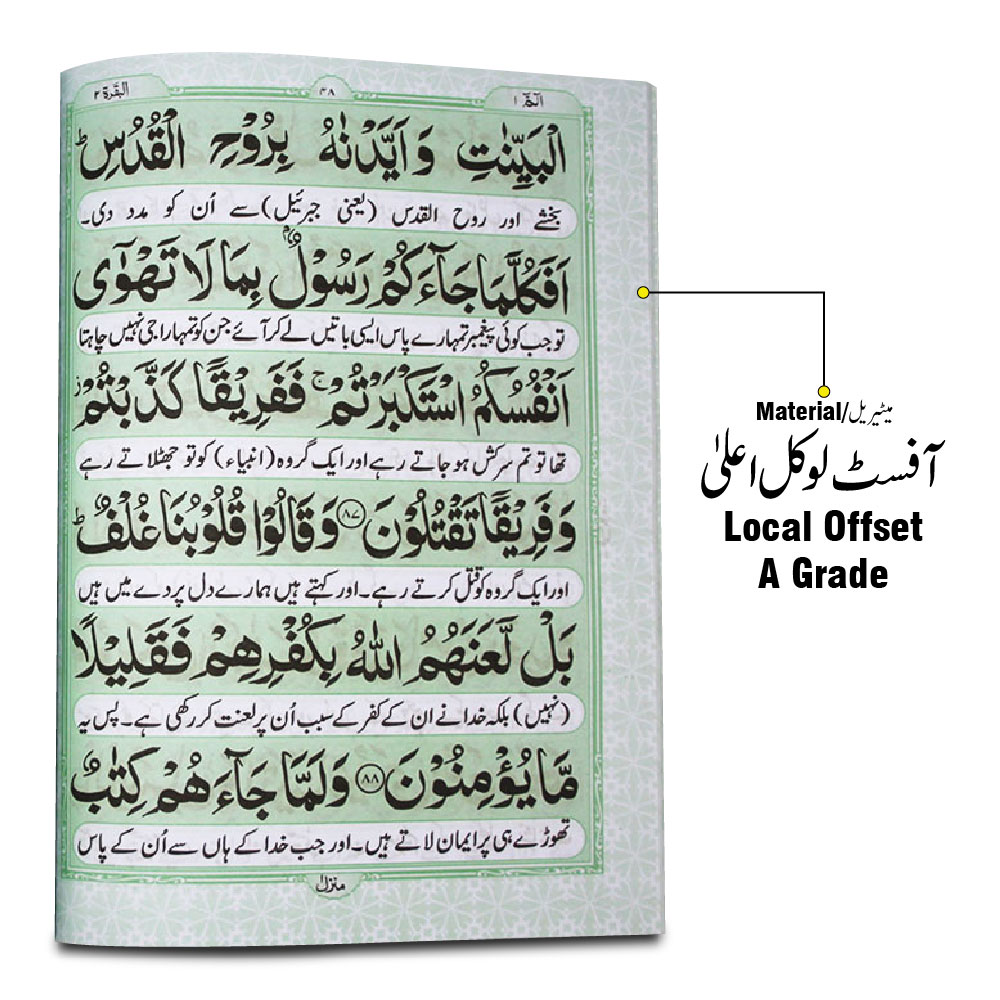 الٓمّٓ ۱
۴۸
البقرة ۲
الْبَيِّنٰتِ وَ اَيَّدْنٰهُ بِرُوْحِ الْقُدُسِ ؕ
بخشے اور روح القدس (یعنی جبرئیل) سے اُن کو مدد دی۔
اَفَكُلَّمَا جَآءَكُمْ رَسُوْلٌۢ بِمَا لَا تَهْوٰٓى
تو جب کوئی پیغمبر تمہارے پاس ایسی باتیں لے کر آئے جن کو تمہارا جی نہیں چاہتا
اَنْفُسُكُمُ اسْتَكْبَرْتُمْ ۚ فَفَرِيْقًا كَذَّبْتُمْ ؗ
تھا تو تم سرکش ہو جاتے رہے اور ایک گروہ (انبیاء) کو تو جھٹلاتے رہے
وَ فَرِيْقًا تَقْتُلُوْنَ ۸۷ وَ قَالُوْا قُلُوْبُنَا غُلْفٌ ؕ
اور ایک گروہ کو قتل کرتے رہے۔ اور کہتے ہیں ہمارے دل پردے میں ہیں
بَلْ لَّعَنَهُمُ اللّٰهُ بِكُفْرِهِمْ فَقَلِيْلًا
(نہیں) بلکہ خدا نے ان کے کفر کے سبب اُن پر لعنت کر رکھی ہے۔ پس یہ
مَّا يُؤْمِنُوْنَ ۸۸ وَ لَمَّا جَآءَهُمْ كِتٰبٌ
تھوڑے ہی پر ایمان لاتے ہیں۔ اور جب خدا کے ہاں سے اُن کے پاس
منزل ۱
Material/میٹیریل
آفسٹ لوکل اعلیٰ
Local Offset
A Grade